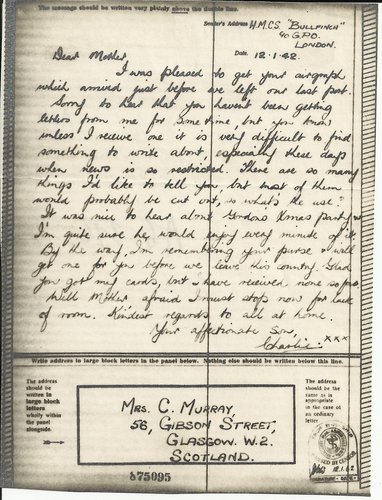 The message should be written very plainly above the double line.
Sender's Address H.M.C.S. "BULLFINCH"
℅ G.P.O.
LONDON.
Date. 12.1.42.
Dear Mother
I was pleased to get your airgraph
which arrived just before we left our last port.
Sorry to hear that you haven't been getting
letters from me for some time but you know
unless I receive one it is very difficult to find
something to write about, especially these days
when news is so restricted. There are so many
things I'd like to tell you, but most of them
would probably be cut out, so what's the use?
It was nice to hear about Gordons Xmas party &
I'm quite sure he would enjoy every minute of it.
By the way, I'm remembering your purse & will
get one for you before we leave this country. Glad
you got my cards, but I have received none so far.
Well Mother, afraid I must stop now for lack
of room. Kindest regards to all at home.
Your affectionate Son,
Charlie. xxx
Write address in large block letters in the panel below. Nothing else should be written below this line.
The address
should be
written in
large block
letters
wholly within
the panel
alongside.
MRS. C. MURRAY,
56, GIBSON STREET,
GLASGOW. W.2.
SCOTLAND.
The address
should be the
same as is
appropriate
in the case of
an ordinary
letter
875095